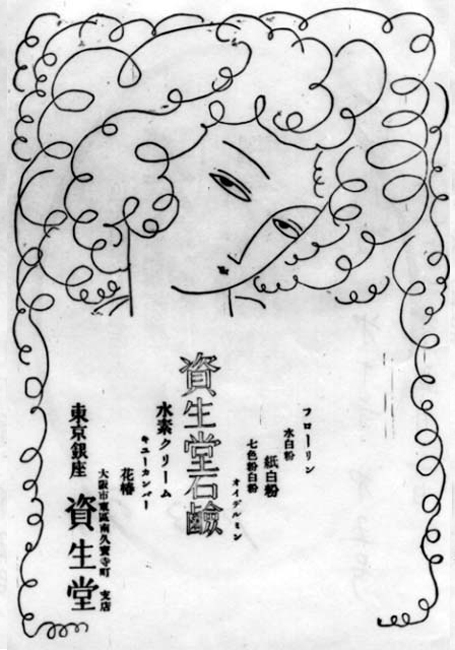 フローリン
水白粉
紙白粉
七色粉白粉
オイデルミン
資生堂石鹼
水素クリーム
キユーカンバー
花椿
大阪市東區南久寳寺町 支店
東京銀座 資生堂